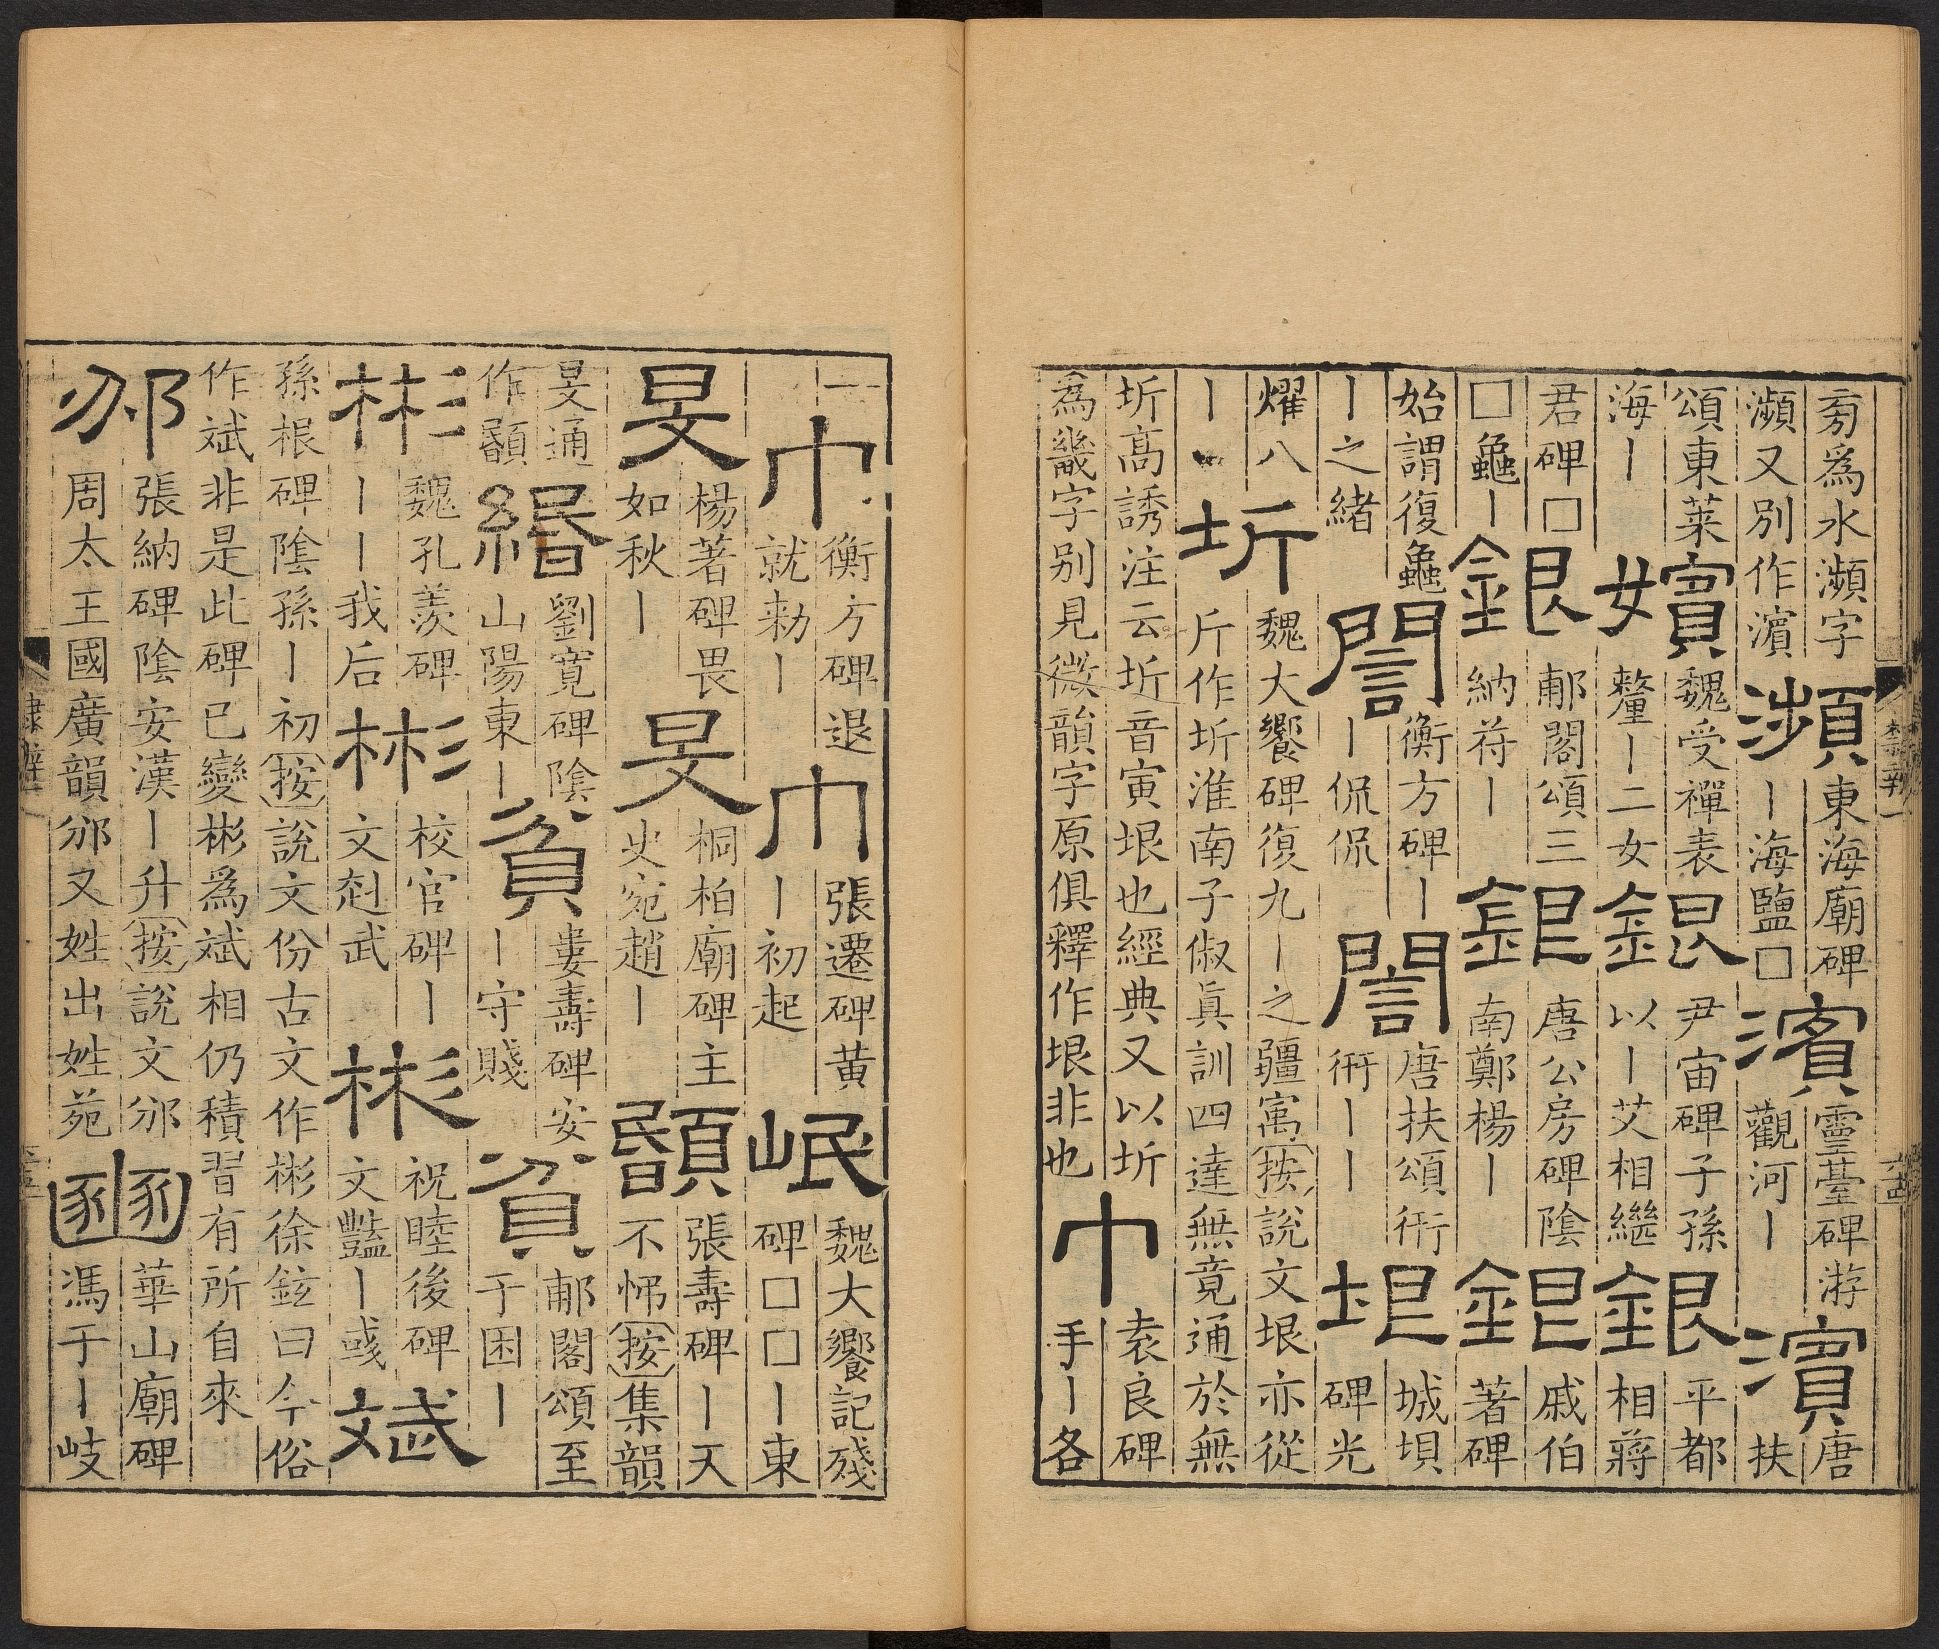 旁爲水瀕字
瀕又別作濱
瀕
東海廟碑
丨海鹽□
濱
靈臺碑游
觀河丨
濱
唐
扶
頌東萊
海丨
嬪
魏受禪表
釐丨二女
銀
尹宙碑子孫
以丨艾相繼
銀
平都
相蔣
君碑□
□龜丨
銀
郙閣頌三
納符丨
銀
唐公房碑陰
南鄭楊丨
銀
戚伯
著碑
始謂復龜
丨之緒
誾
衡方碑丨
丨侃侃
誾
唐扶頌衎
衎丨丨
垠
城垻
碑光
燿八
丨
圻
魏大饗碑復九丨之疆㝢按說文垠亦從
斤作圻淮南子俶真訓四達無竟通於無
圻高誘注云圻音寅垠也經典又以圻
為畿字别見微韻字原俱釋作垠非也
巾
袁良碑
手丨各
一
巾
衡方碑退
就勑丨
巾
張遷碑黄
丨初起
岷
魏大饗記殘
碑□□丨東
旻
楊著碑畏
如秋丨
旻
桐柏廟碑主
史宛趙丨
𩔉
張壽碑丨天
不按集韻
旻通
作𩔉
緡
劉寬碑陰
山陽東丨
貧
婁壽碑安
丨守賤
貧
郙閣頌至
于困丨
彬
魏孔羨碑
丨丨我后
彬
校官碑丨
文赳武
彬
祝睦後碑
文豔丨彧
斌
孫根碑陰孫丨初按說文份古文作彬徐鉉曰今俗
作斌非是此碑已變彬爲斌相仍積習有所自來
邠
張納碑陰安漢丨升按說文邠
周太王國廣韻邠又姓出姓苑
豳
華山廟碑
馮于丨岐